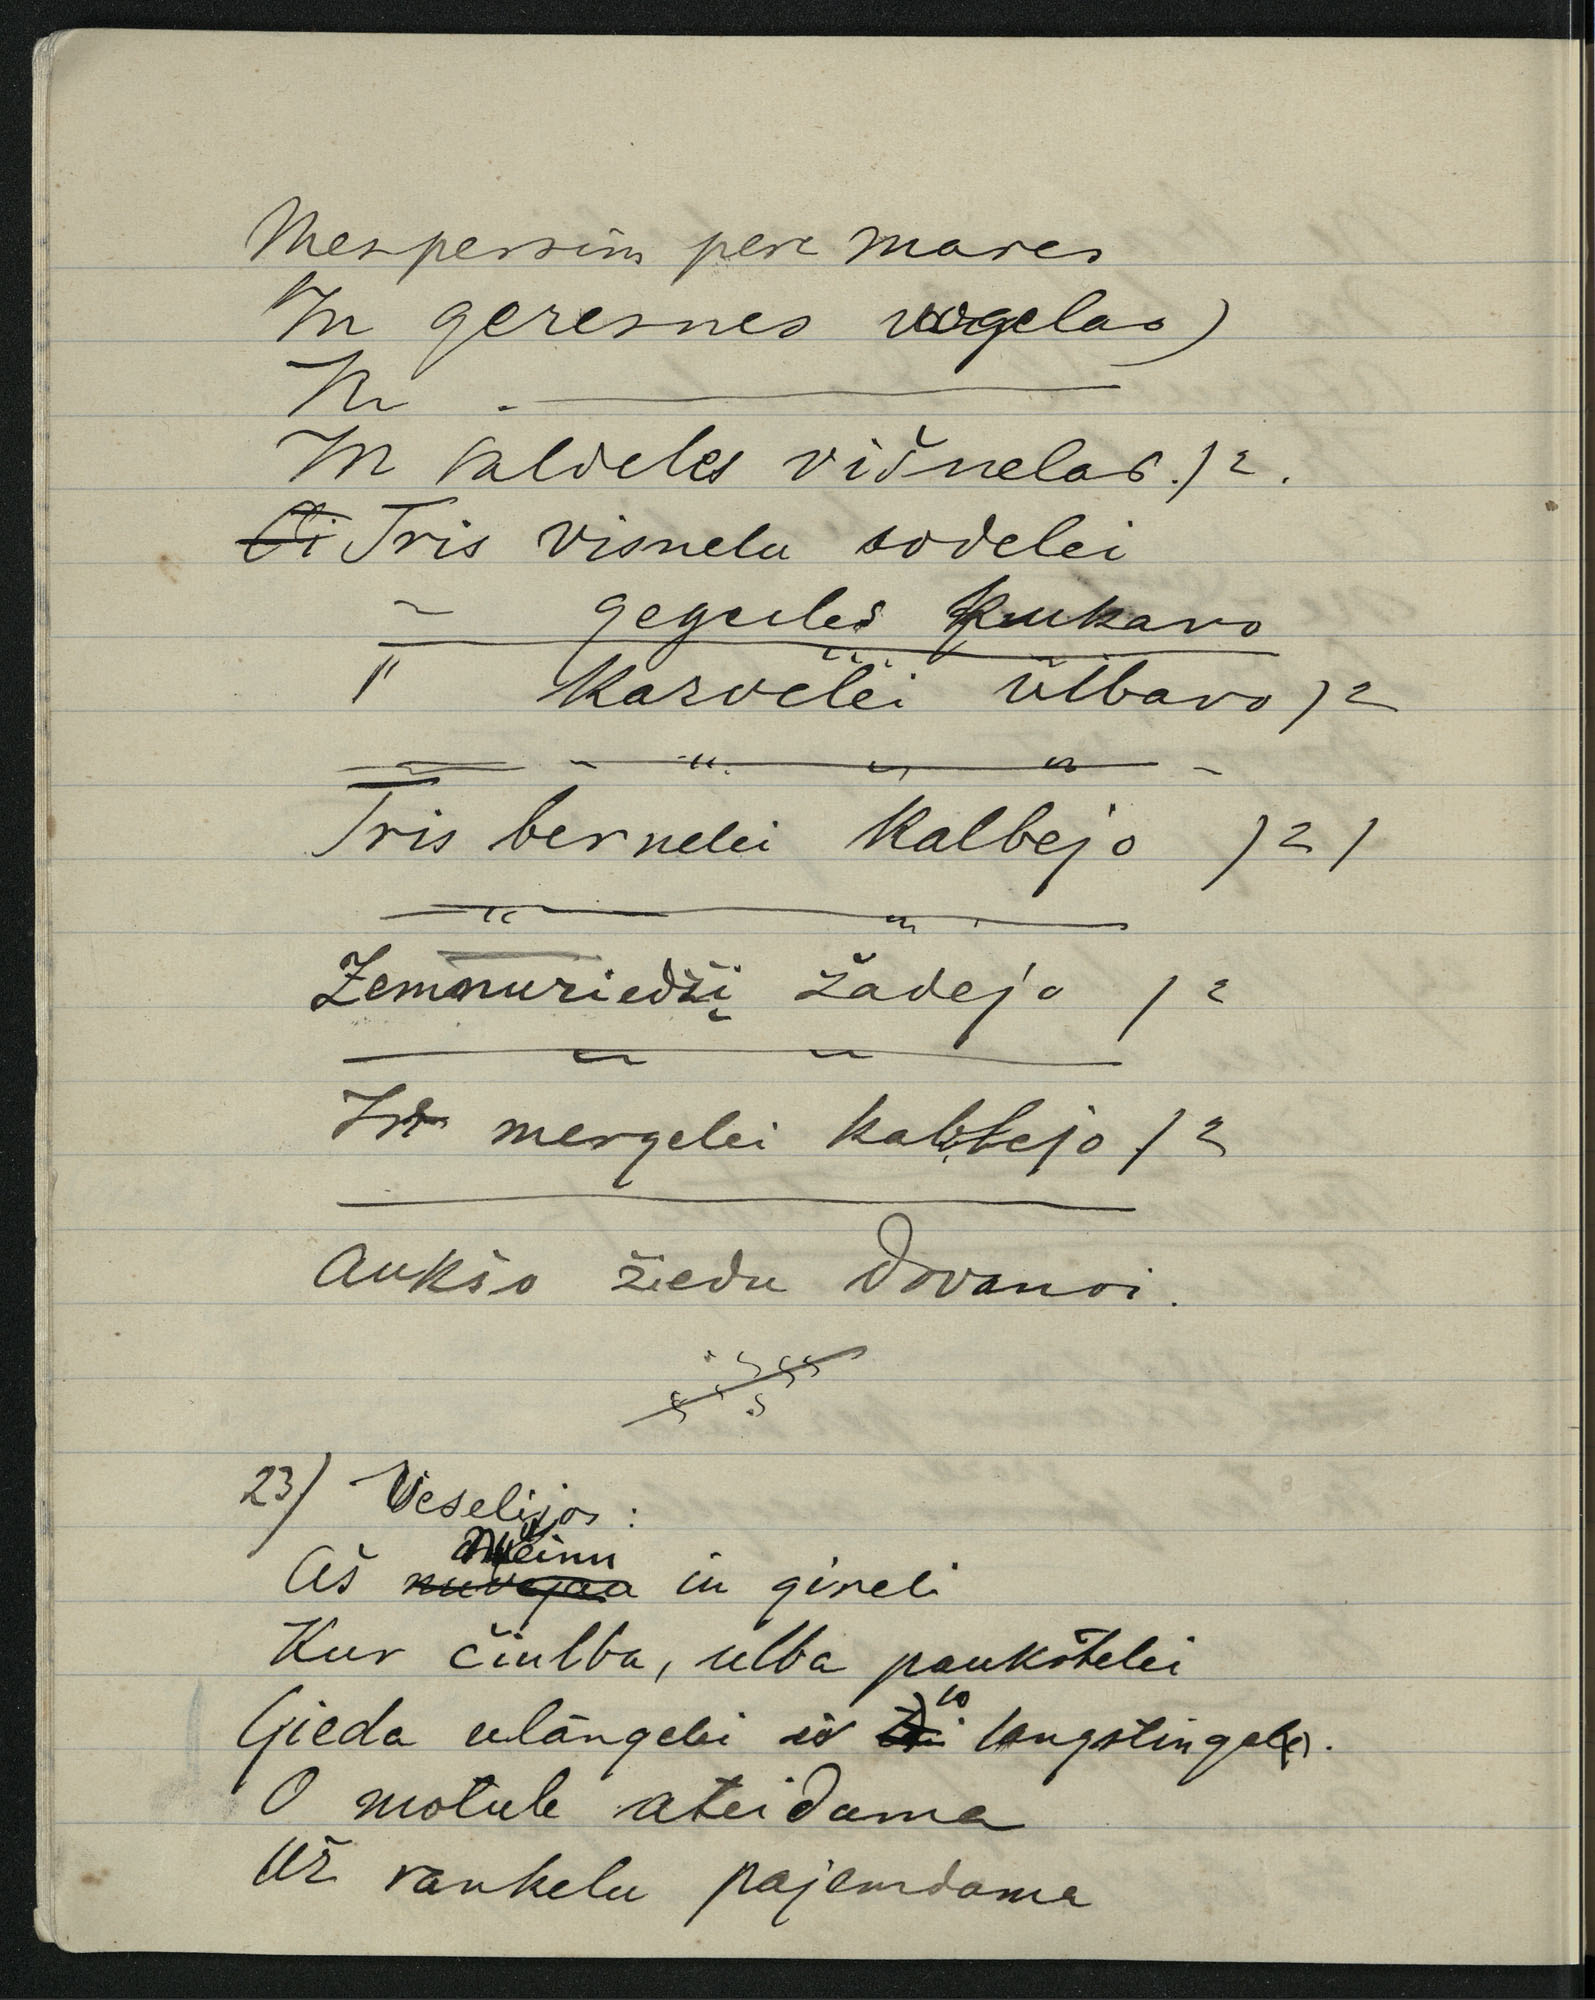 Mes persim per mares
In geresnes uogelas)
In
In saldeles višnelas.)2.
Oi Tris visnelu sodelei
" gegules kukavo
" Karvelei ulbavo )2
Tris bernelei kalbejo )2)
žadejo )2
Tris mergelei kalbejo )2
Aukso žiedu dovanoi.
23) Veselijos:
Aš nuvejau ateinu in gireli
Kur čiulba, ulba paukštelei
Gieda ulangelei ir lengštingele.
O motule ateidama
Už rankelu pajemdama